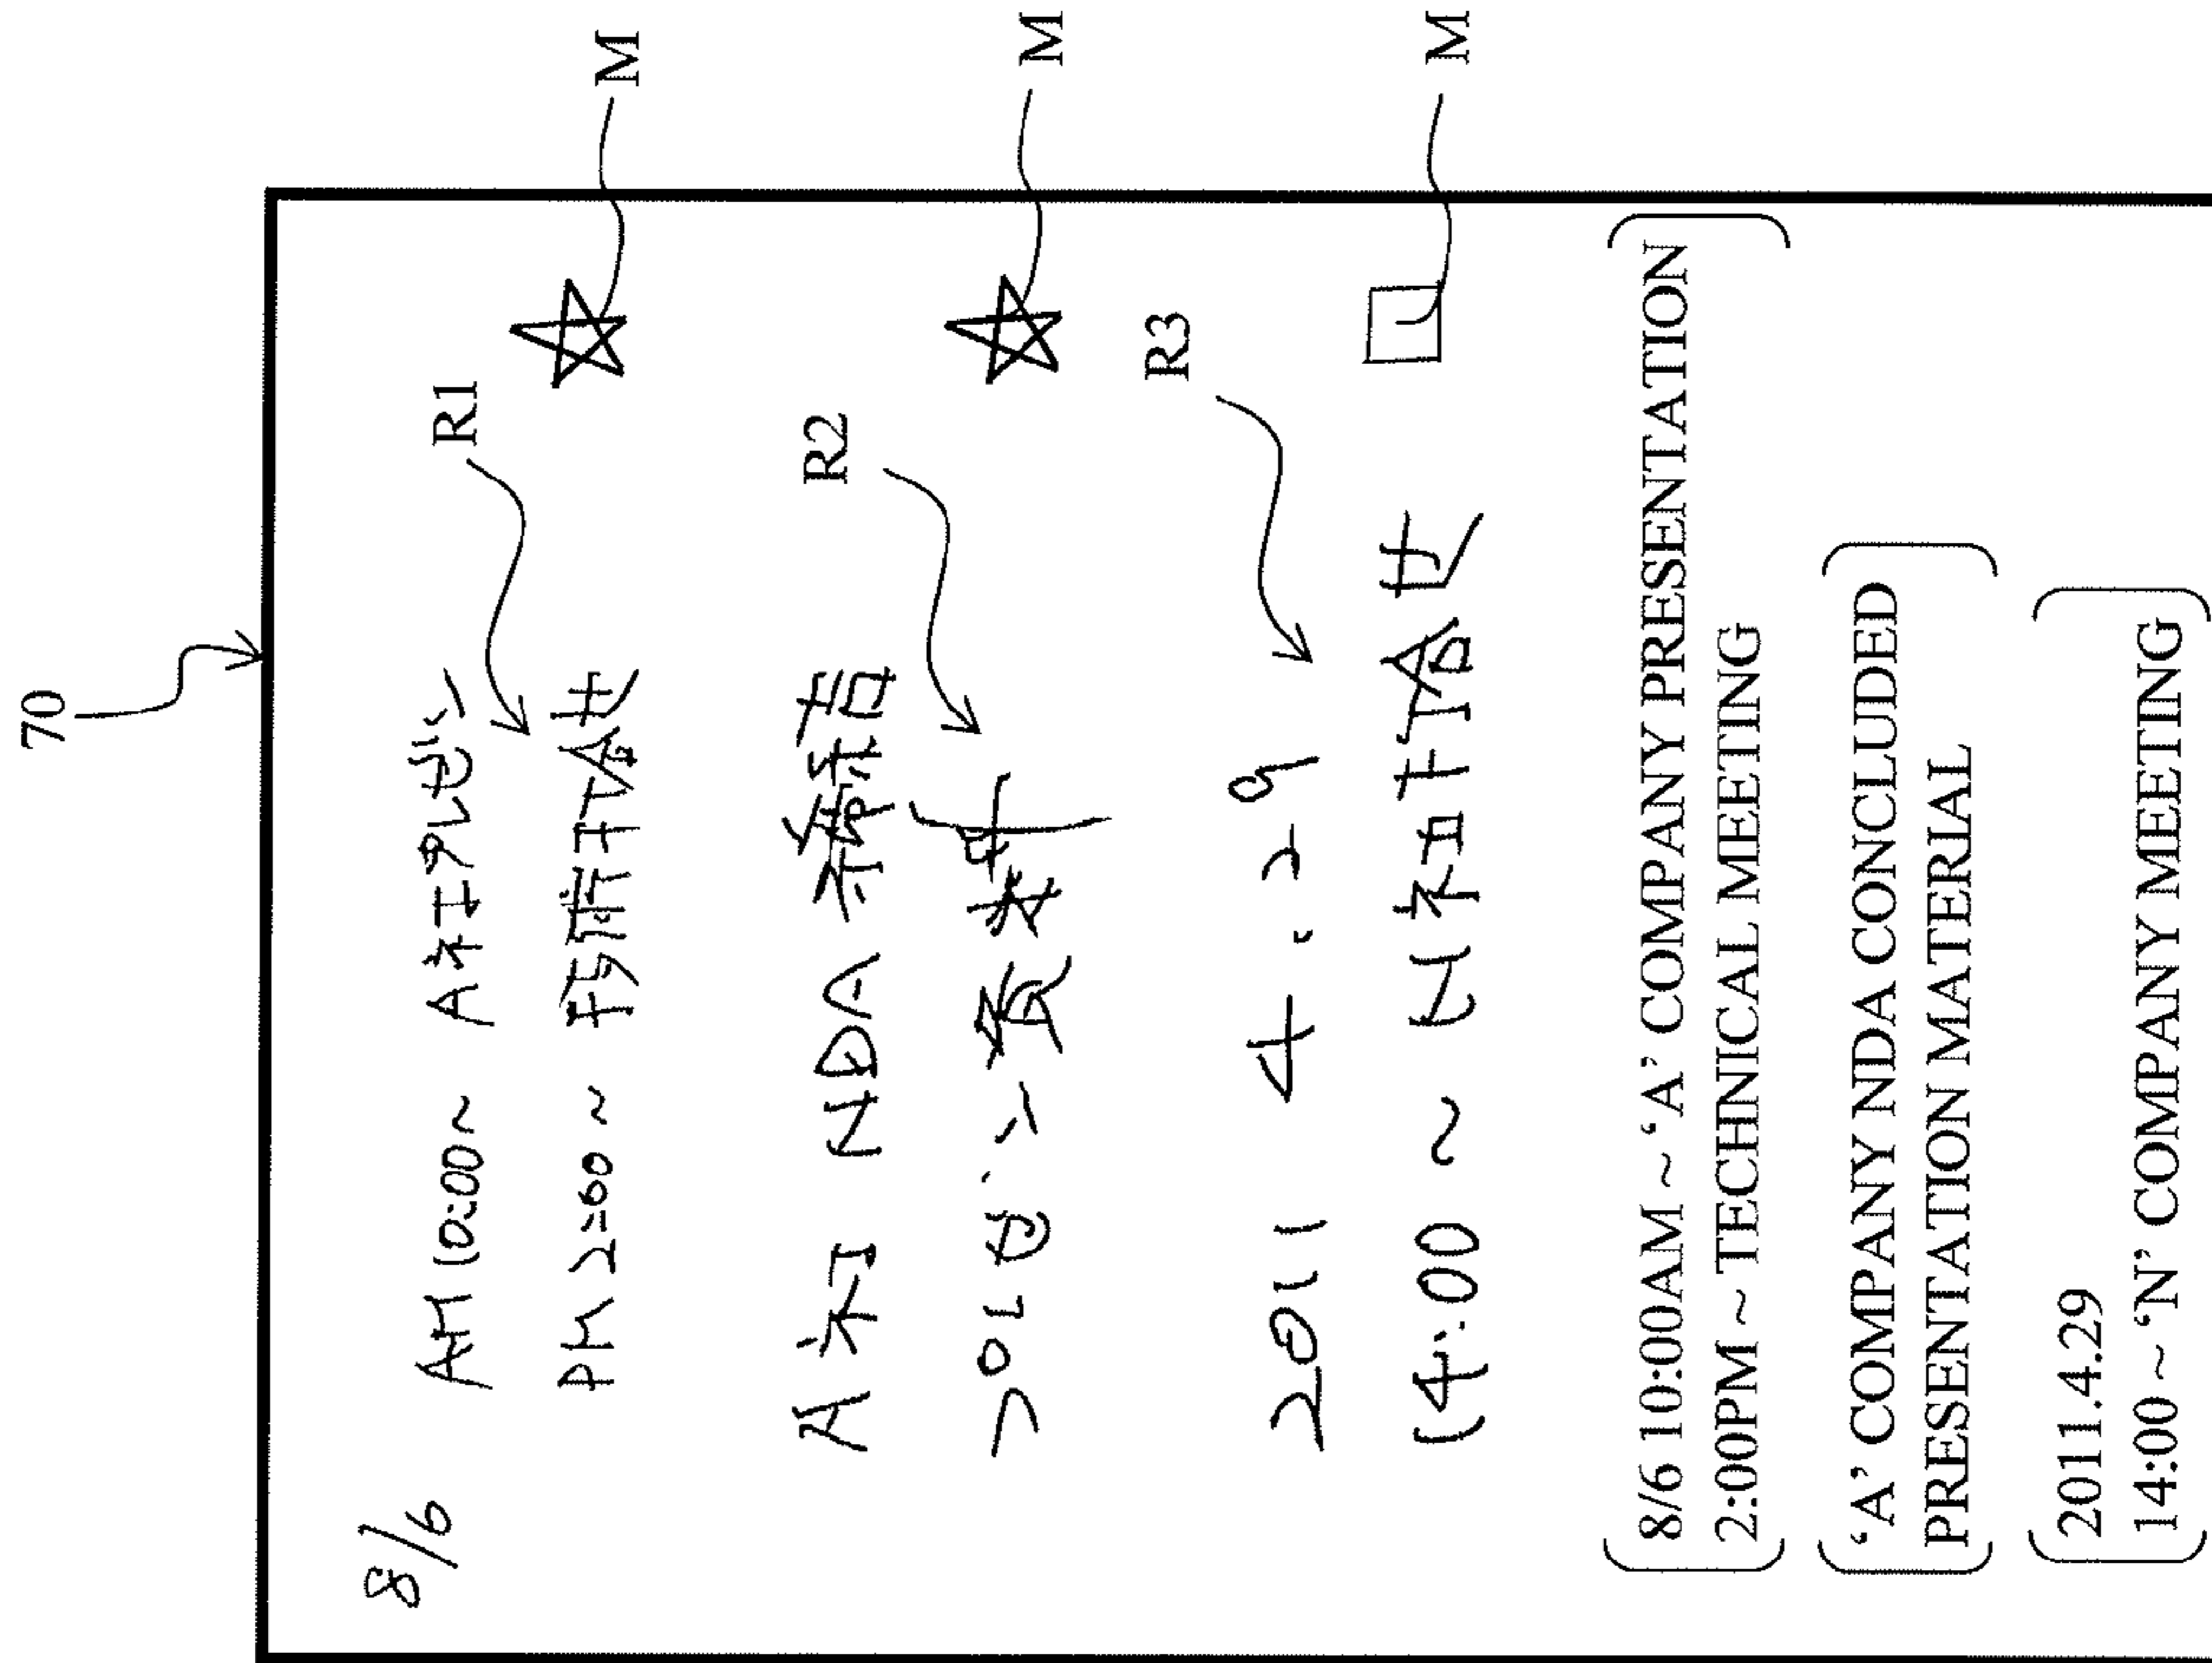 70
8/6 AM 10:00~ A社プレゼン
R1
PM 2:00~ 技術打合せ
M
A社 NDA 締結
R2
プレゼン資料
M
R3
2011 4.29
14:00 ~ N社打合せ
M
8/6 10:00AM ~ ‘A’ COMPANY PRESENTATION
2:00PM ~ TECHNICAL MEETING
‘A’ COMPANY NDA CONCLUDED
PRESENTATION MATERIAL
2011.4.29
14:00 ~ ‘N’ COMPANY MEETING